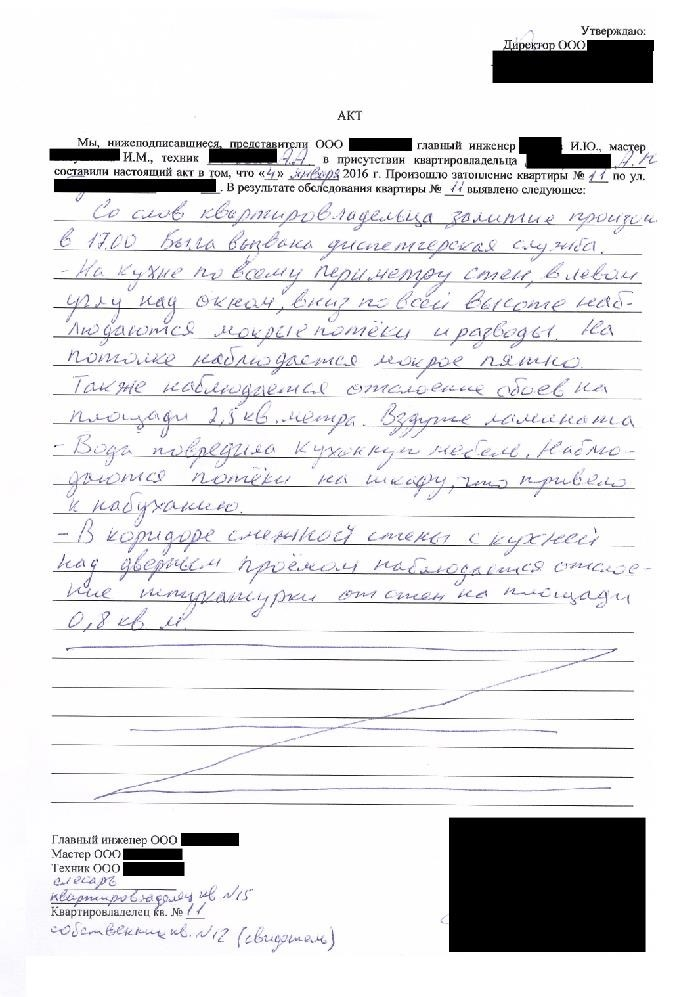 Утверждаю:
Директор ООО
АКТ
Мы, нижеподписавшиеся, представители ООО главный инженер И.Ю., мастер
И.М., техник А.А. в присутствии квартировладельца А.Н
составили настоящий акт в том, что «4» января 2016 г. Произошло затопление квартиры № 11 по ул.
. В результате обследования квартиры № 11 выявлено следующее:
Со слов квартировладельца залитие произош
в 17.00 Была вызвана диспетчерская служба.
- На кухне по всему периметру стен, в левом
углу над окном, вниз по всей высоте наб-
людаются мокрые потёки и разводы. На
потолке наблюдается мокрое пятно.
Также наблюдается отслоение обоев на
площади 2,5 кв. метра. Вздутие ламината
- Вода повредила кухонную мебель. Наблю-
даются потёки на шкафу, что привело
к набуханию.
- В коридоре смежной стены с кухней
над дверным проёмом наблюдается отслое-
ние штукатурки от стен на площади
0,8 кв м.
Главный инженер ООО
Мастер ООО
Техник ООО
слесарь
квартировладелец кв N15
Квартировладелец кв. № 11
собственник кв. N12 (свидетель)